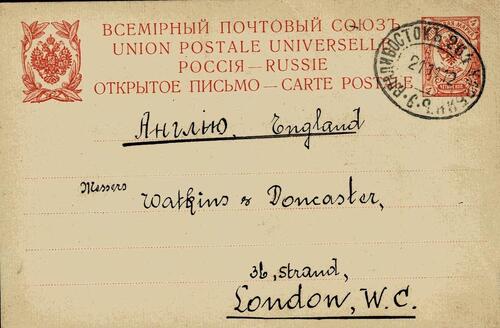 ВСЕМІРНЫЙ ПОЧТОВЫЙ СОЮЗЪ
UNION POSTALE UNIVERSELLE
РОССІЯ — RUSSIE
ОТКРЫТОЕ ПИСЬМО — CARTE POSTALE
Англію, England
Messers
Watkins & Doncaster,
36, Strand,
London, W.C.